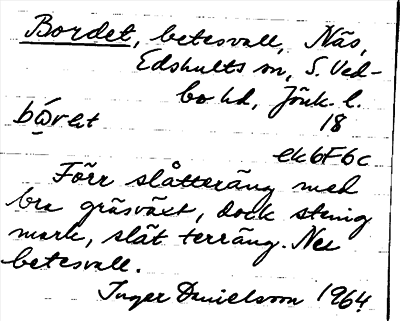 Bordet, betesvall, Näs,
Edshults sn, S. Ved-
bo hd, Jönk. l.
18
ek6F6c
Förr slåtteräng med
bra gräsväxt, dock stenig
mark, slät terräng. Nu
betesvall.
Inger Danielsson 1964